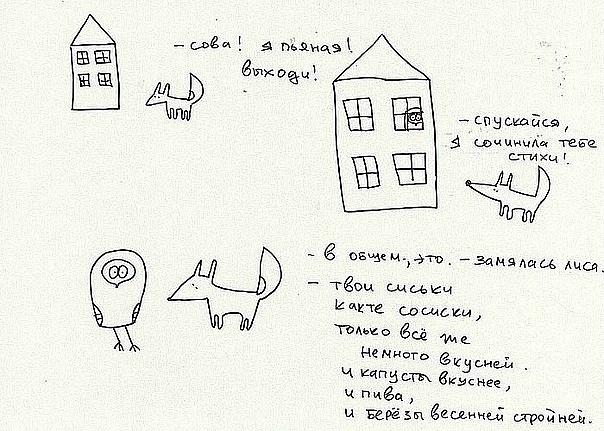 - сова! я пьяная!
выходи!
- спускайся,
я сочинила тебе
стихи!
- в общем, это. - замялась лиса.
- твои сиськи
как те сосиски,
только всё же
немного вкусней.
и капусты вкуснее,
и пива,
и берёзы весенней стройней.